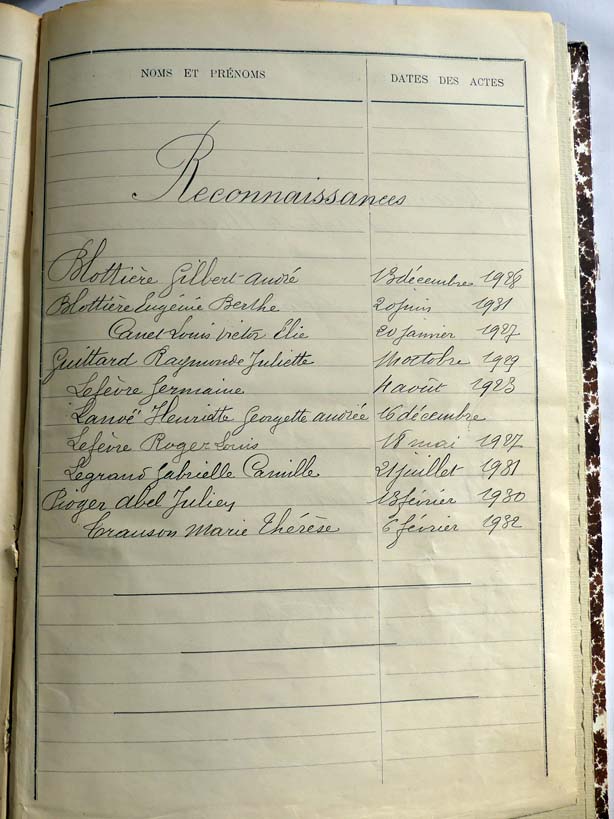 NOMS ET PRÉNOMS DATES DES ACTES
Reconnaissances
Blottière Gilbert André 13 décembre 1926
Blottière Eugénie Berthe 20 juin 1931
Canet Louis Victor Elie 20 janvier 1927
Guittard Raymonde Juliette octobre 1929
Lefèvre Germaine 4 août 1923
Lanoë Henriette Georgette Andrée 16 décembre
Lefèvre Roger Louis 18 mai 1927
Legrand Gabrielle Camille 21 juillet 1931
Pioger Abel Julien 13 février 1930
Marie Thérèse 6 février 1932